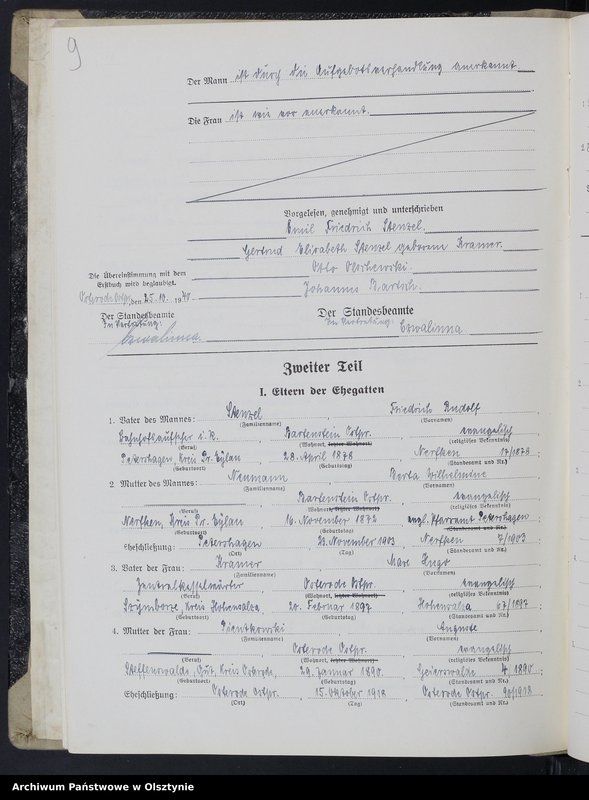 9
Der Mann ist durch die Aufgebotsverhandlung anerkannt
Die Frau ist wie vor anerkannt.
Vorgelesen, genehmigt und unterschrieben
Emil Friedrich Stenzel.
Gertrud Elisabeth Stenzel geborene Kramer.
Otto
Johannes Bartsch.
Die Übereinstimmung mit dem
Erstbuch wird beglaubigt.
Osterode Ostpr., den 25. 10. 1940.
Der Standesbeamte
In Vertretung:
Czwalinna
Der Standesbeamte
In Vertretung: Czwalinna
Zweiter Teil
I. Eltern der Ehegatten
1. Vater des Mannes: Stenzel, Friedrich Rudolf
(Familienname) (Vornamen)
Bahnhofsaufseher i. R., Bartenstein Ostpr., evangelisch
(Beruf) (Wohnort, letzter Wohnort) (religiöses Bekenntnis)
Petershagen, Kreis Pr. Eylau, 28. April 1878, Nerfken 17/1878;
(Geburtsort) (Geburtstag) (Standesamt und Nr.)
2. Mutter des Mannes: Neumann, Berta Wilhelmine
(Familienname) (Vornamen)
Bartenstein Ostpr., evangelisch
(Beruf) (Wohnort, letzter Wohnort) (religiöses Bekenntnis)
Nerfken, Kreis Pr. Eylau, 16. November 1872, evgl. Pfarramt Petershagen;
(Geburtsort) (Geburtstag) (Standesamt und Nr.)
Eheschließung: Petershagen, 23. November 1903, Nerfken 7/1903
(Ort) (Tag) (Standesamt und Nr.)
3. Vater der Frau: Kramer, Max Hugo
(Familienname) (Vornamen)
Zentralkassenwärter, Osterode Ostpr., evangelisch
(Beruf) (Wohnort, letzter Wohnort) (religiöses Bekenntnis)
Szymborze, Kreis Hohensalza, 20. Februar 1897, Hohensalza 67/1897;
(Geburtsort) (Geburtstag) (Standesamt und Nr.)
4. Mutter der Frau: Pientkowski, Auguste
(Familienname) (Vornamen)
Osterode Ostpr., evangelisch
(Beruf) (Wohnort, letzter Wohnort) (religiöses Bekenntnis)
Steffenswalde, Gut, Kreis Osterode, 29. Januar 1890, Geierswalde 4/1890;
(Geburtsort) (Geburtstag) (Standesamt und Nr.)
Eheschließung: Osterode Ostpr., 15. Oktober 1918, Osterode Ostpr. 90/1918
(Ort) (Tag) (Standesamt und Nr.)
Archiwum Państwowe w Olsztynie